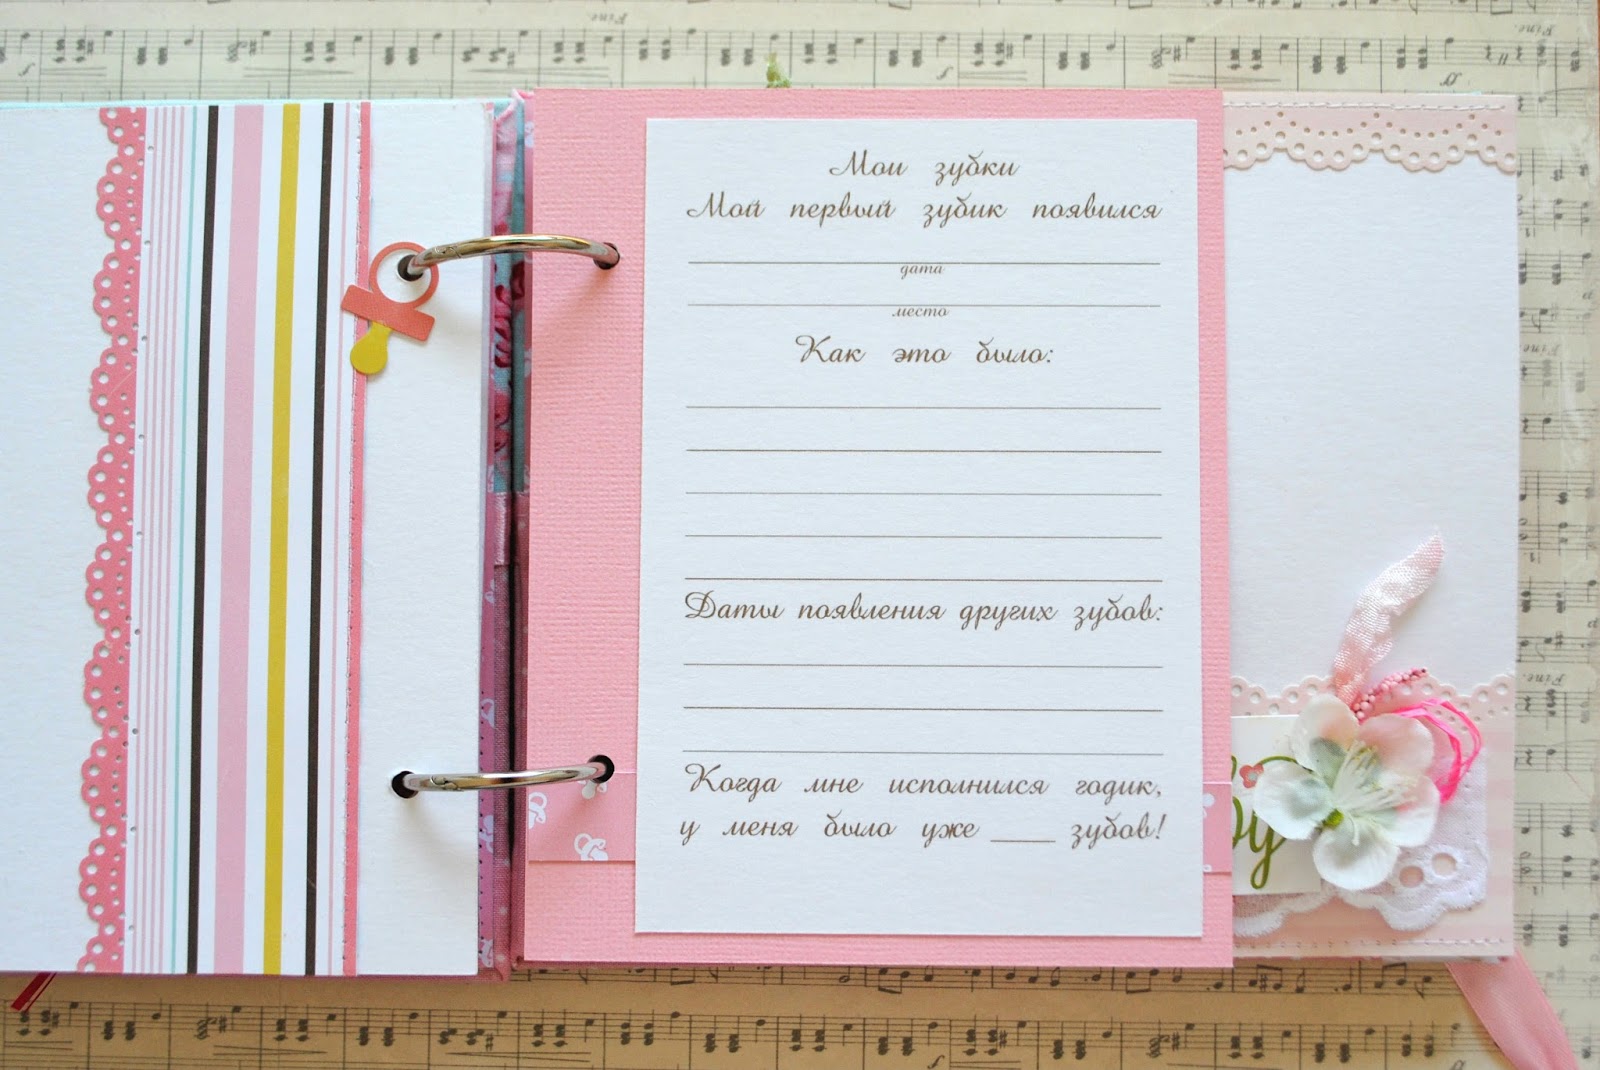 Fine.
Мои зубки
Мой первый зубик появился
дата
место
Как это было:
Даты появления других зубов:
Когда мне исполнился годик,
у меня было уже ____ зубов!
Fine.
Fine.